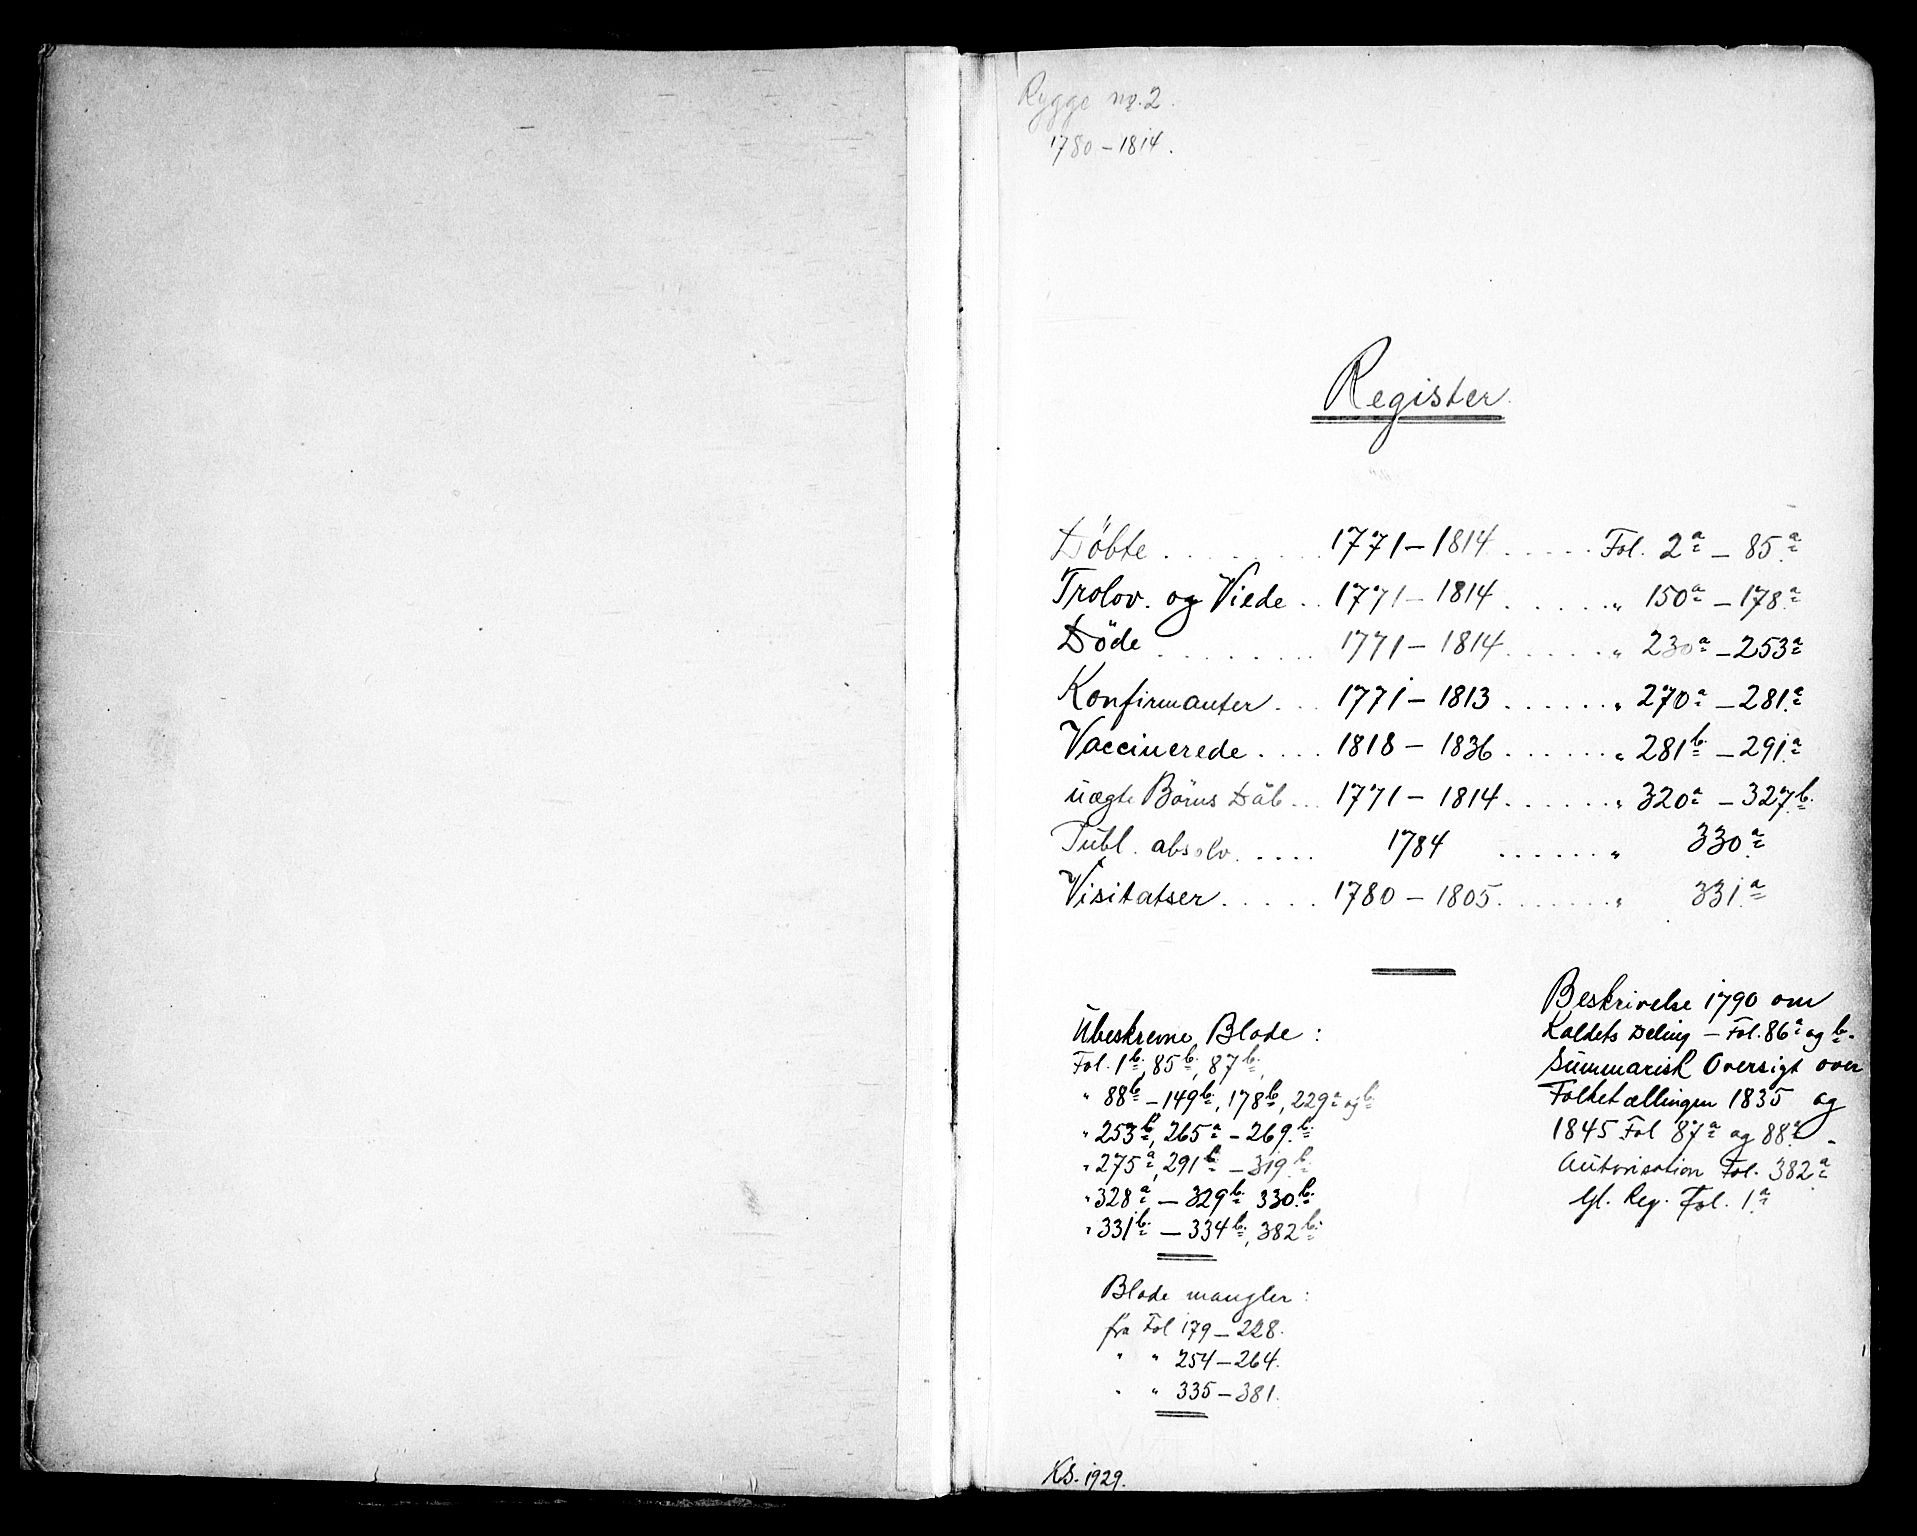 Rygge nr. 2.
1780 – 1814.
Register
Döbte . . . . . . . . 1771 – 1814 . . . . . Fol. 2a – 85a
Trolov. og Viede . . 1771 – 1814 . . . . . . " 150a – 178a
Döde . . . . . . . . 1771 – 1814 . . . . . . " 230a – 253a
Konfirmanter . . . 1771 – 1813 . . . . . . " 270a – 281a
Vaccinerede . . . . 1818 – 1836 . . . . . . " 281b – 291a
uægte Börns Dåb . . . 1771 – 1814 . . . . . . " 320a – 327b.
Publ. absolv. . . . . 1784 . . . . . . " 330a
Visitatser . . . . . 1780 – 1805 . . . . . . . " 331a
Ubeskrevne Blade :
Fol. 1b, 85b, 87b,
" 88b – 149b, 178b, 229a og b
" 253b, 265a – 269b
" 275a, 291b – 319b
" 328a – 329b 330b
" 331b – 334b, 382b
Blade mangler :
fra Fol 179 – 228.
" " 254 – 264.
" " 335 – 381.
Beskrivelse 1790 om
Kaldets Deling – Fol. 86a og b.
Summarisk Oversigt over
Folketællingen 1835 og
1845 Fol 87a og 88a –
Autorisation Fol. 382a
Gl. Reg. Fol. 1a
KS. 1929.